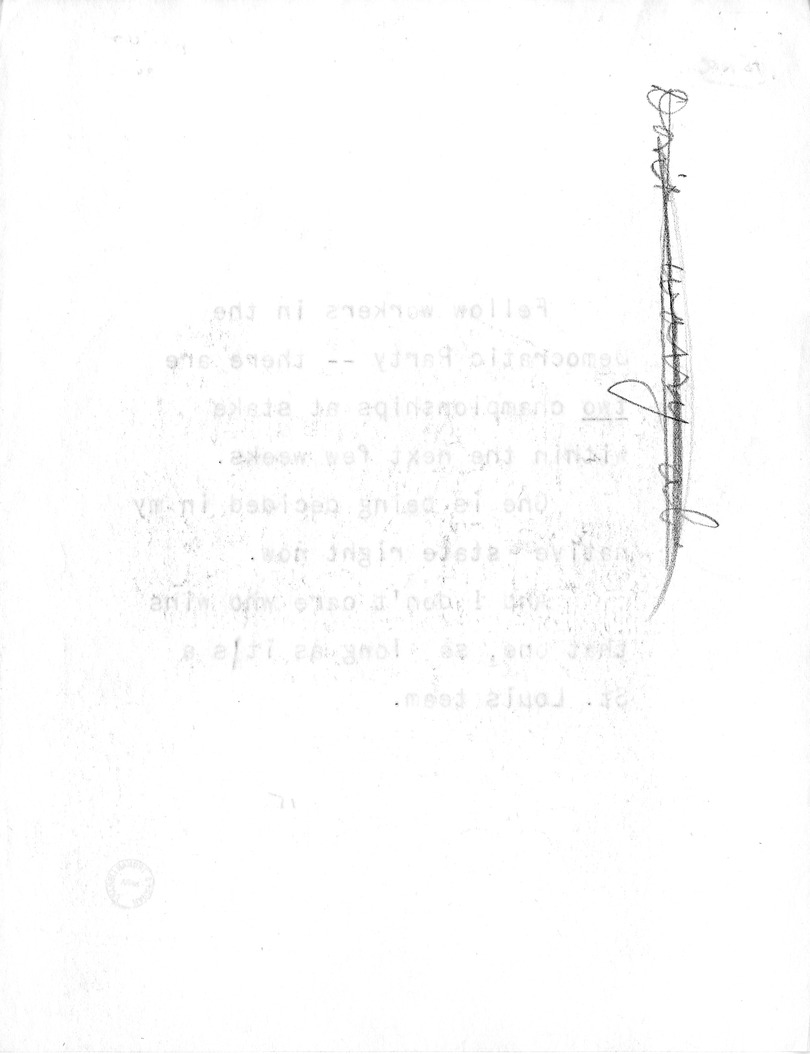 Fellow workers in the
Democratic Party -- there are
two championships at stake
within the next few weeks.
One is being decided in my
native state right now.
And I don't care who wins
that one, as long as it's a
St. Louis team.